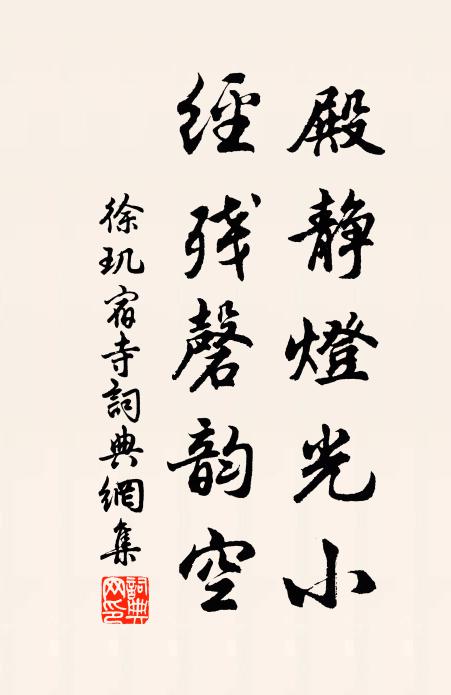 殿静燈光小
經残磬韵空
徐玑宿寺詞典網集
詞典网印